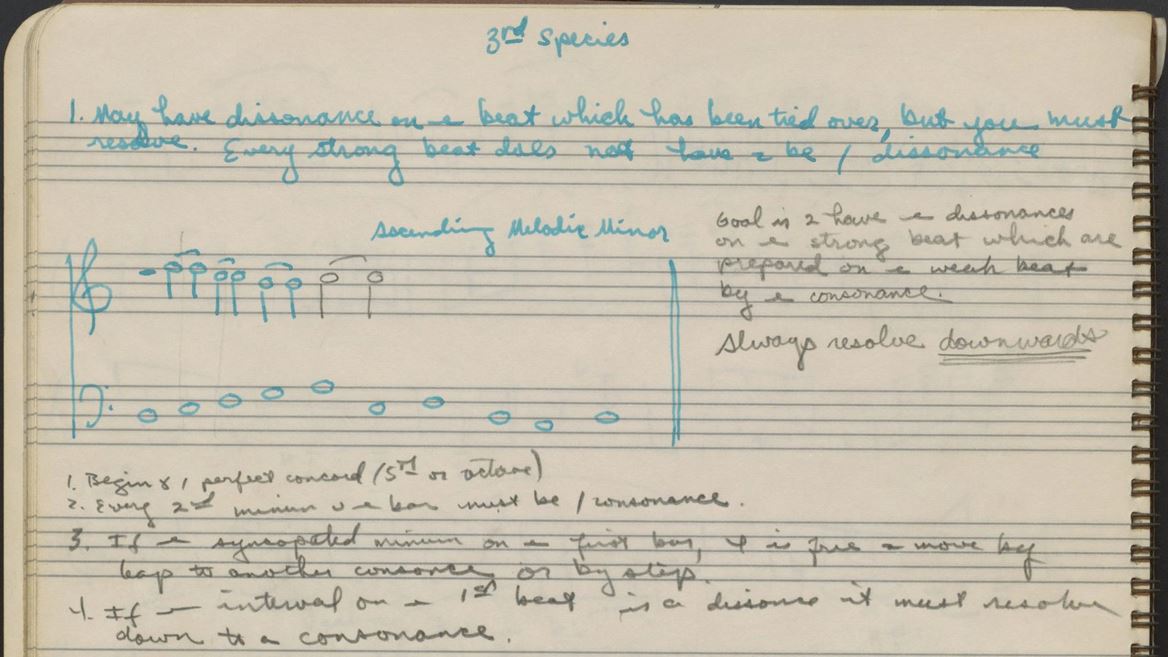 3rd Species
1. May have dissonance on a beat which has been tied over, but you must
resolve. Every strong beat does not have 2 be / dissonance
Ascending Melodic Minor
Goal is 2 have dissonances
on strong beat which are
prepared on a weak beat
by consonance.
Always resolve downwards
1. Begin perfect concord (5th or octave)
2. Every 2nd minim bar must be / consonance.
3. If syncopated minim on first bar, is free move by
leap to another consonance or by step.
4. If interval on 1st beat is a dissonance it must resolve
down to a consonance.